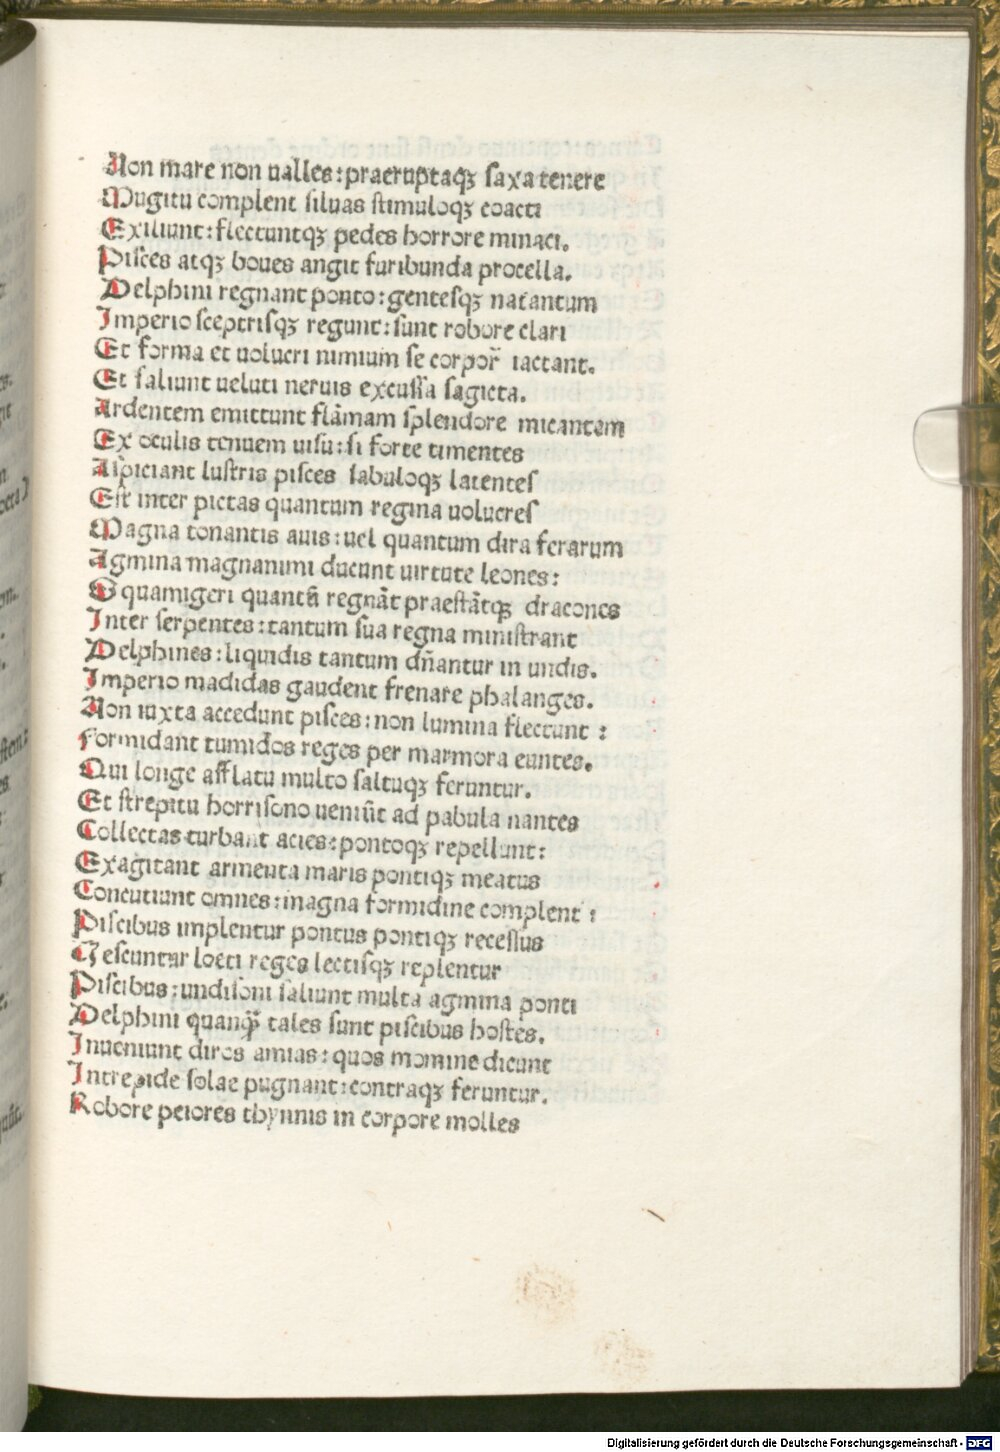 Non mare non ualles: praeruptaqꝫ saxa tenere
Mugitu complent siluas stimuloqꝫ coacti
Exiliunt: flectuntqꝫ pedes horrore minaci.
Pisces atqꝫ boues angit furibunda procella.
Delphini regnant ponto: gentesqꝫ natantum
Imperio sceptrisqꝫ regunt: sunt robore clari
Et forma et uolucri nimium se corpor̄ iactant.
Et saliunt ueluti neruis excussa sagicta.
Ardentem emittunt flāmam splendore micantem
Ex oculis tenuem uisu: si forte timentes
Aspiciant lustris pisces sabuloqꝫ latentes
Est inter pictas quantum regina uolucres
Magna tonantis auis: uel quantum dira ferarum
Agmina magnanimi ducunt uirtute leones:
Squamigeri quantū regnāt praestātqꝫ dracones
Inter serpentes: tantum sua regna ministrant
Delphines: liquidis tantum dn̄antur in undis.
Imperio madidas gaudent frenare phalanges.
Non iuxta accedunt pisces: non lumina flectunt:
Formidant tumidos reges per marmora euntes.
Qui longe afflatu multo saltuqꝫ feruntur.
Et strepitu horrisono ueniūt ad pabula nantes
Collectas turbant acies: pontoqꝫ repellunt:
Exagitant armenta maris pontiqꝫ meatus
Concutiunt omnes: magna formidine complent:
Piscibus implentur pontus pontiqꝫ recessus
Vescuntur loeti reges lectisqꝫ replentur
Piscibus: undisoni saliunt multa agmina ponti
Delphini quanqꝫ tales sunt piscibus hostes.
Inueniunt diros amias: quos momine dicunt
Intrepide solae pugnant: contraqꝫ feruntur.
Robore peiores thynnis in corpore molles
Digitalisierung gefördert durch die Deutsche Forschungsgemeinschaft - DFG